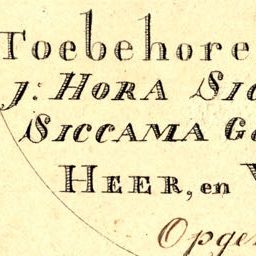 Toebehore
J: HORA SIC
SICCAMA G
HEER, en
Opge